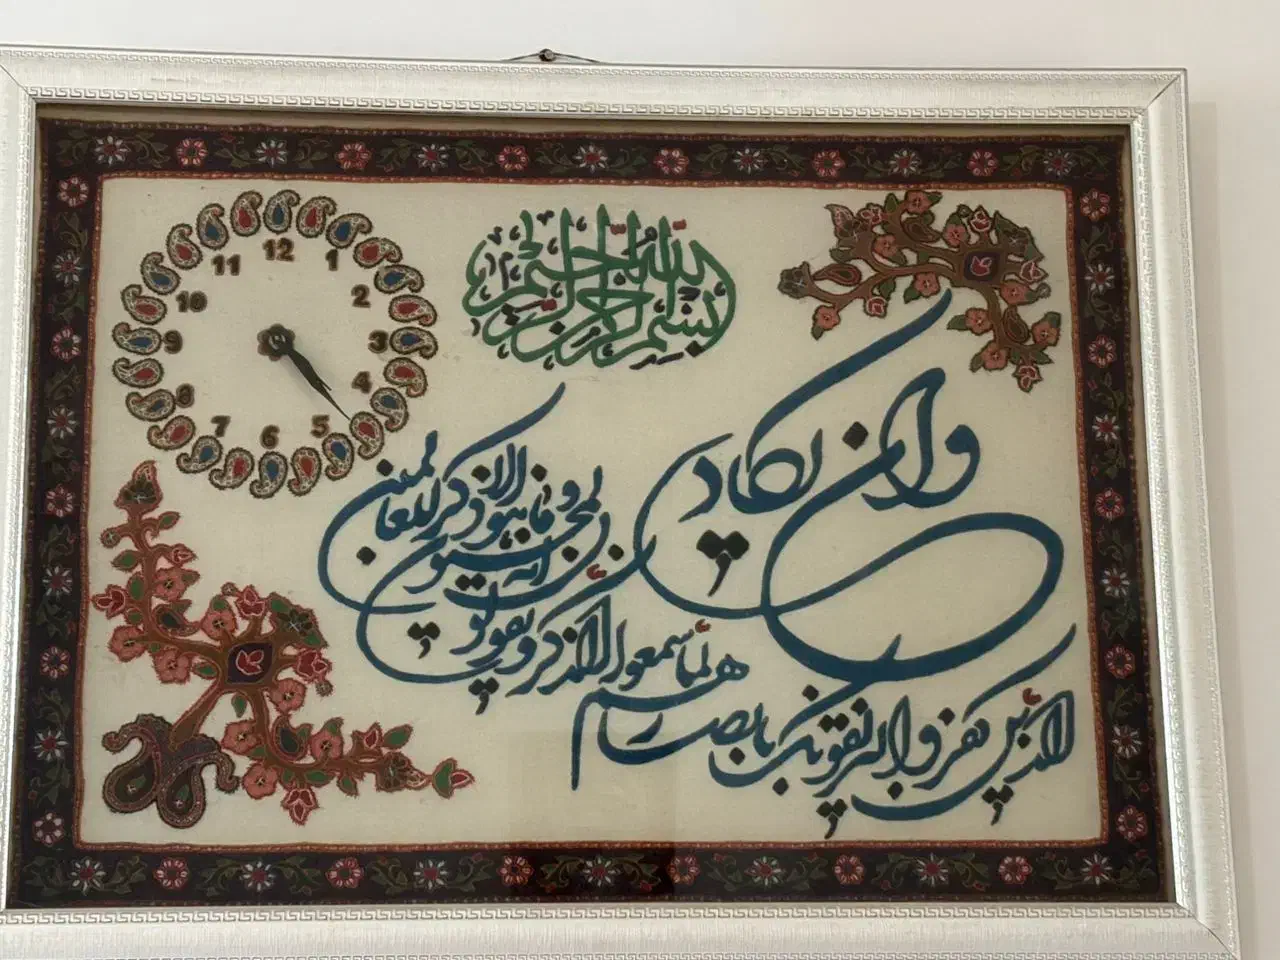 بسم الله الرحمن الرحیم
وان یکاد
الذین کفروا لیزلقونک بابصارهم
لما سمعوا الذکر و یقولون
انه لمجنون
و ما هو الا ذکر للعالمین
12
1
2
3
4
5
6
7
8
9
10
11